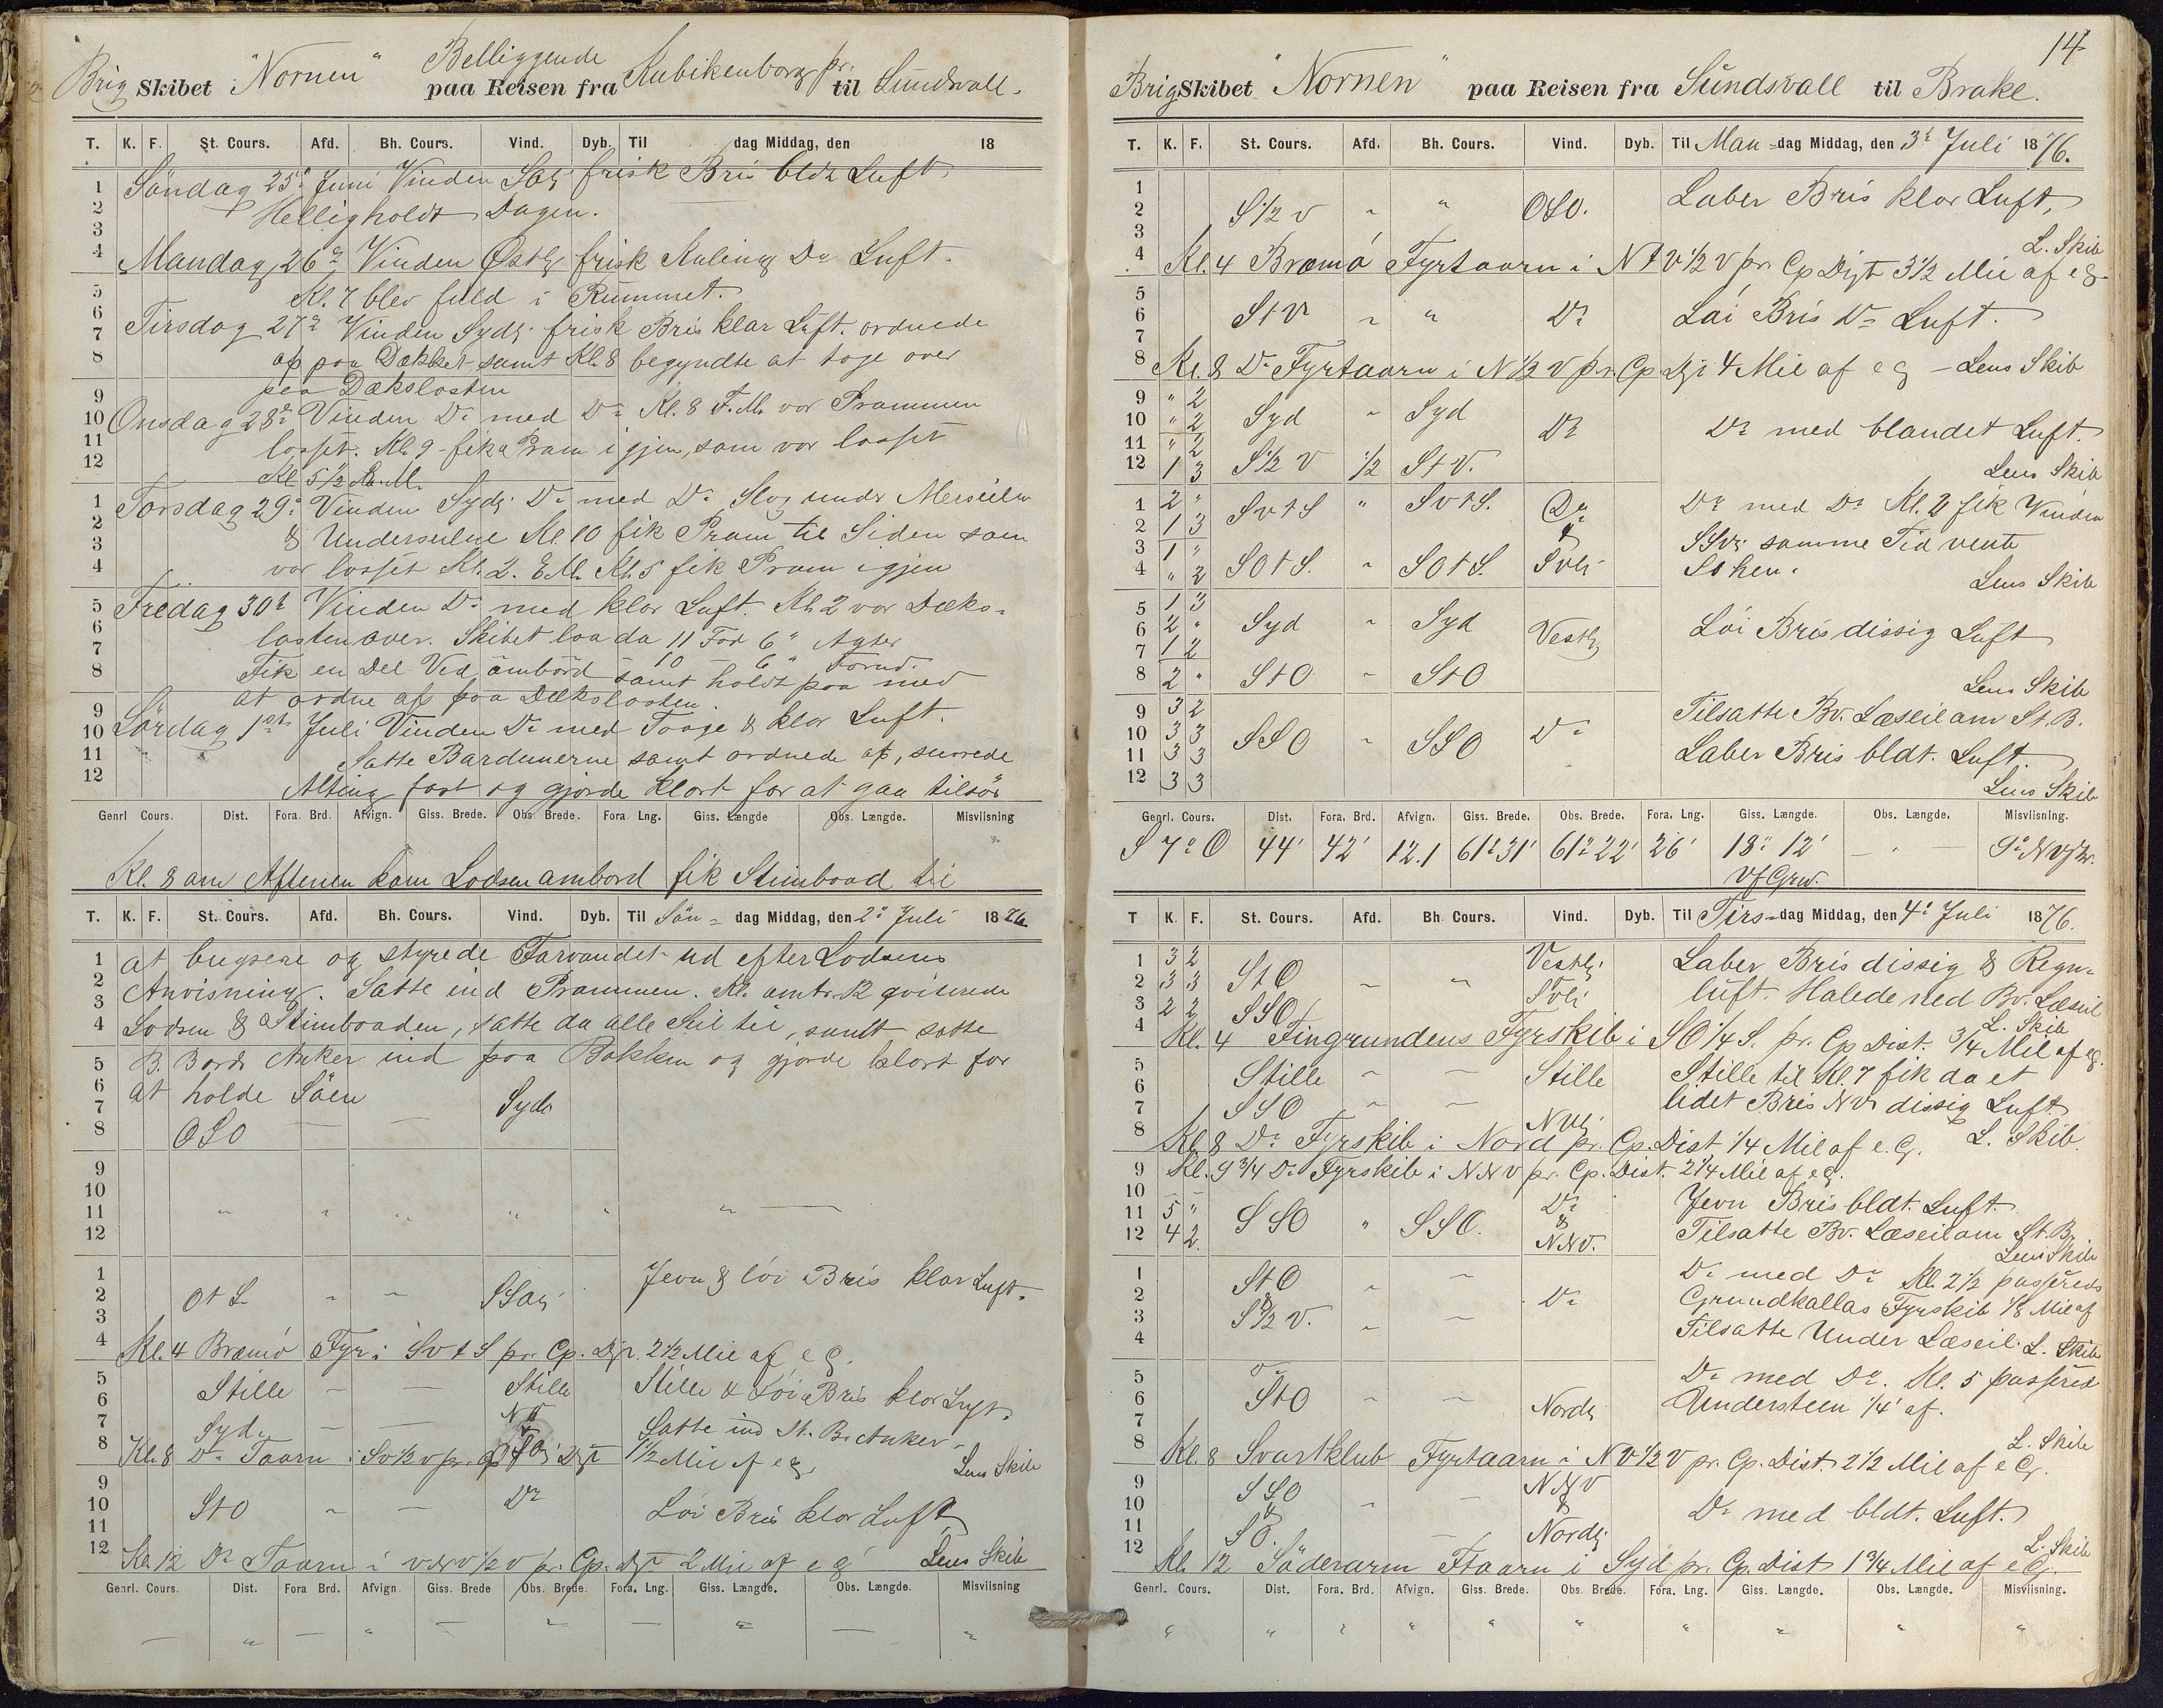 Brig Skibet "Nornen" Belliggende paa Reisen fra Kubikenborg pr. til Sundsvall.
T. K. F. St. Cours. Afd. Bh. Cours. Vind. Dyb. Til dag Middag, den 18
1 2 3 4 5 6 7 8 9 10 11 12
1 2 3 4 5 6 7 8 9 10 11 12
Söndag 25de Juni Vinden frisk Bris bldt Luft
Helligholdt Dagen.
Mandag 26de Vinden Østlg frisk Kuling Do Luft.
Kl. 7 blev fuld i Rummet.
Tirsdag 27de Vinden Sydlg frisk Bris klar Luft. ordnede
af paa Dækket samt Kl. 8 begyndte at tage over
paa Dækslasten
Onsdag 28de Vinden Do med Do Kl. 8 F.M. var Prammen
losset. Kl. 9 fik a Pram igjen, som var losset
Kl 5 1/2 E.M.
Torsdag 29de Vinden Sydlg Do med Do Slog under Merseilene
& Underseilene Kl. 10 fik Pram til Siden som
var losset Kl. 2. E.M. Kl. 5 fik Pram igjen
Fredag 30te Vinden Do med klar Luft. Kl. 2 var Dæks-
lasten over. Skibet laa da 11 Fod 6" Agter
10 — 6" Forud.
Fik en Del Ved ombord samt holdt paa med
at ordne af paa Dækslasten.
Lördag 1ste Juli Vinden Do med Taage & klar Luft.
Satte Bardunerne samt ordnede af, surrede
Alting fast og gjorde klart for at gaa tilsös
Genrl Cours. Dist. Fora. Brd. Afvign. Giss. Brede. Obs. Brede. Fora. Lng. Giss. Længde Obs. Længde. Misviisning
Kl. 8 om Aftenen kom Lodsen ombord fik Stimbaad til
T. K. F. St. Cours. Afd. Bh. Cours. Vind. Dyb. Til Sön- dag Middag, den 2de Juli 1876
at bugsere og styrede Farvandet ud efter Lodsens
Anvisning. Satte ind Prammen. Kl. omtr. 12 qviterede
Lodsen & Stimbaaden, satte da alle Seil til, samt satte
B. Bords Anker ind paa Bakken og gjorde klart for
at holde Söen
OSO — — Sydlg
OtS " " SSO Jevn & löi Bris klar Luft.
Kl. 4 Bræmö Fyr i SvtS pr. Cp. Dist. 2 1/2 Mil af e G.
Stille — — Stille Stille & Löi Bris klar Luft.
Syd Satte ind St. B. Anker.
Kl. 8 Do Taarn i Sv 1/2 v pr. Cp Dist 1 1/2 Mil af e g. Lens Skib
StO " — Do Löi Bris klar Luft
Kl. 12 Do Taarn i vNv 1/2 v pr. Cp. Dist 2 Mil af e g Lens Skib
Genrl. Cours. Dist. Fora Brd. Afvign Giss. Brede Obs. Brede. Fora. Lng. Giss. Længde. Obs. Længde. Misviisning
14
Brig Skibet "Nornen" paa Reisen fra Sundsvall til Brake.
T. K. F. St. Cours. Afd. Bh. Cours. Vind. Dyb. Til Man-dag Middag, den 3de Juli 1876.
S 1/2 v " " OSO. Laber Bris klar Luft,
L. Skib
Kl. 4 Bræmö Fyrtaarn i NtV 1/2 V pr. Cp Dist 3 1/2 Mil af e g.
StV " " Do Löi Bris Do Luft.
Kl. 8 Do Fyrtaarn i N 1/2 v pr. Cp Dist 4 Mil af e g — Lens Skib
9 " 2
10 " 2 Syd " Syd Do Do med blandet Luft.
11 " 2
12 1 3 S 1/2 V 1/2 StV. Lens Skib
1 2 " SvtS " SvtS. Do Do med Do Kl. 2 fik Vinden
2 1 3 &
3 1 " SSv. samme Tid vendt
4 " 2 SOtS. " SOtS. Svlg SO hen. Lens Skib
5 1 3
6 2 " Syd " Syd Vestlg Löi Bris dissig Luft
7 1 2
8 2 " StO " StO Lens Skib
9 3 2 Tilsatte Bv. Læseil om St. B.
10 3 3 SSO " SSO Do
11 3 3 Laber Bris bldt. Luft.
12 3 3 Lens Skib
Genrl. Cours. Dist. Fora. Brd. Afvign. Giss. Brede. Obs. Brede. Fora. Lng. Giss. Længde. Obs. Længde. Misviisning.
S 7° O 44' 42' 12.1 61° 31' 61° 22' 26' 18° 12' — " — 9° NVg
Vf Grw.
T K. F. St. Cours. Afd. Bh. Cours. Vind. Dyb. Til Tirs-dag Middag, den 4de Juli 1876.
1 3 2 StO " " Vestlg. Laber Bris dissig & Regn-
2 3 3 Svlg luft. Halede ned Bv. Læseil
3 2 2 SSO
4 L. Skib
Kl. 4 Fingrundens Fyrskib i SO 1/4 S. pr. Cp Dist. 3/4 Mil af eg.
Stille " — Stille Stille til Kl. 7 fik da et
SSO " — NVlg lidet Bris NV dissig Luft
Kl. 8 Do Fyrskib i Nord pr. Cp. Dist 1/4 Mil af e. G. L. Skib.
Kl. 9 3/4 Do Fyrskib i NNV pr. Cp. Dist. 2 1/4 Mil af e g.
11 5 " SSO " SSO. Do Jevn Bris bldt. Luft.
12 4 2 & NNV. Tilsatte Bv. Læseil om St. B.
Lens Skib
StO " — Do med Do Kl. 2 1/2 passerede
& Do Grundkallas Fyrskib 1/8 Mil af
S 1/2 V. " — Tilsatte Under Læseil. L. Skib
Do med Do. Kl. 5 passered
StO " — Nordlg Understeen 1/4 af.
L. Skib
Kl. 8 Svartklub Fyrtaarn i NV 1/2 V pr. Cp. Dist. 2 1/2 Mil af e G.
SSO NNV
& " — & Do med bldt. Luft.
SO. Nordlg. L. Skib
Kl. 12 Söderarm Ftaarn i Syd pr. Cp. Dist 1 3/4 Mil af e G.
Genrl. Cours. Dist. Fora. Brd. Afvign. Giss. Brede. Obs. Brede. Fora. Lng. Giss. Længde. Obs. Længde. Misviisning.